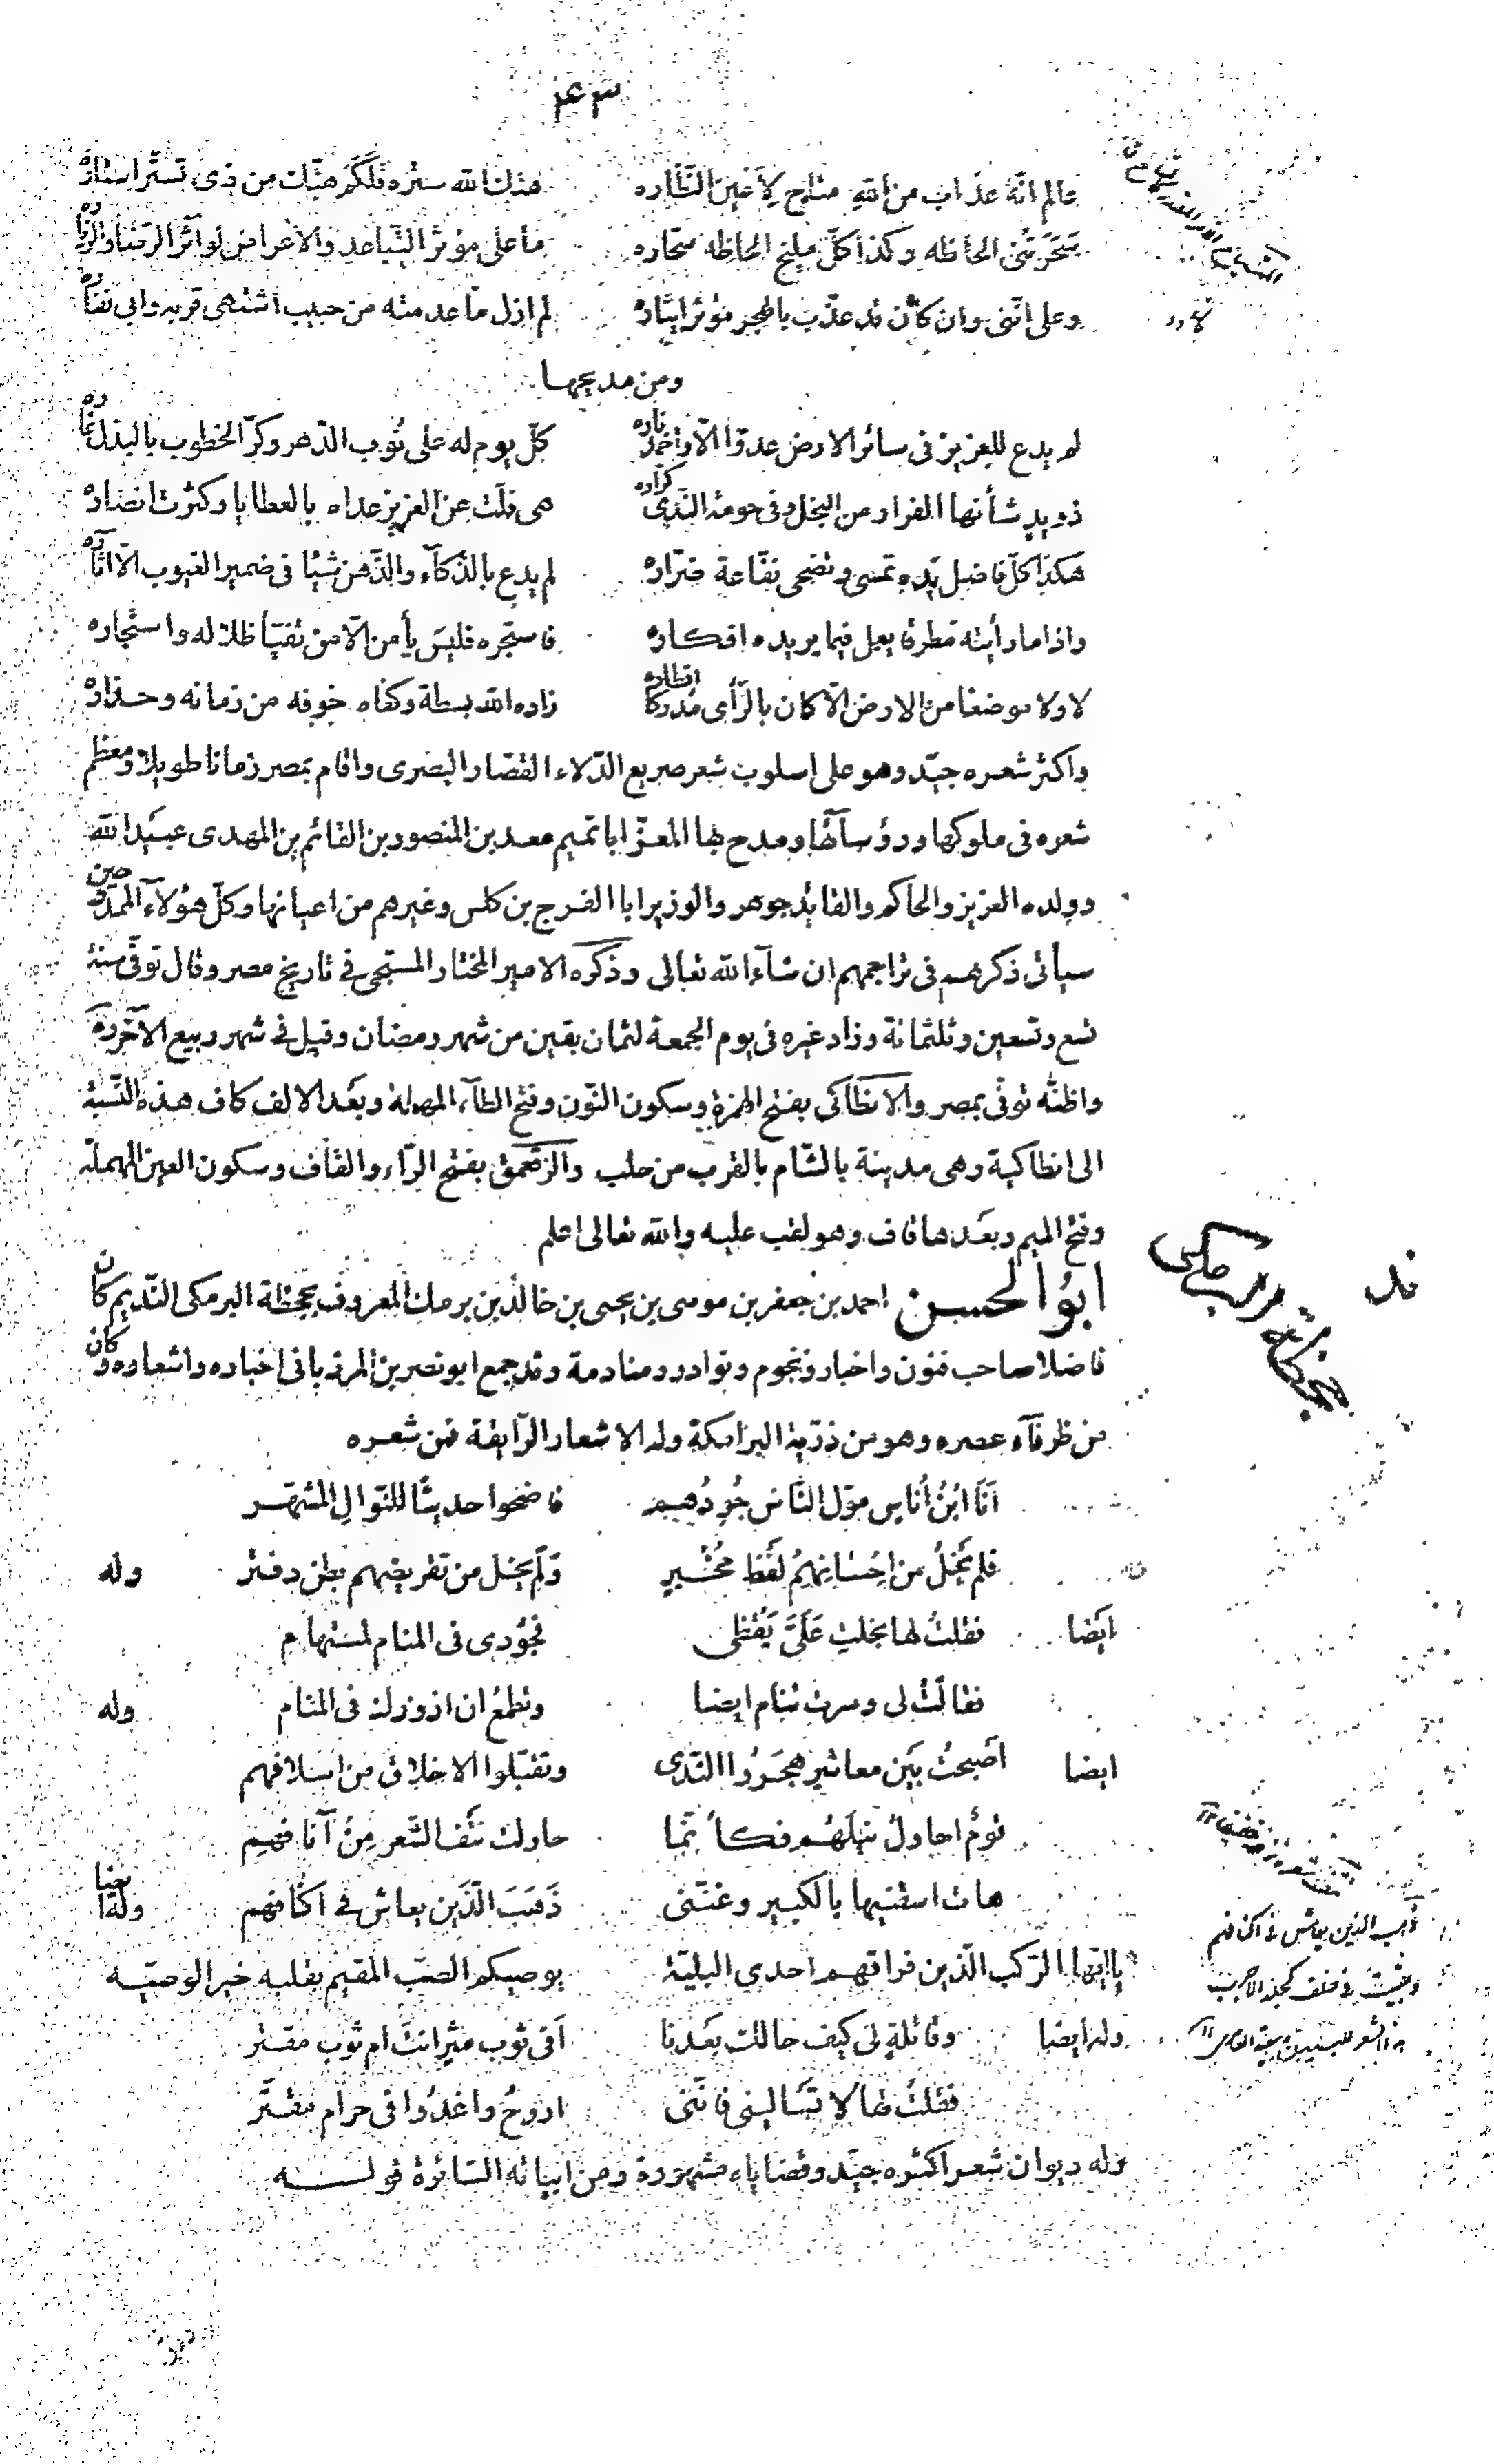 ٤٣
عالم انّه عذاب من الله متاح لاعين النّظاره هتك الله ستره فلكم هتّك من ذى تستّر استاره
سحرتنى الحاظه وكذا كلّ مليح الحاظه سحّاره ما على مؤثر التّباعد والاعراض لو آثر الرضا والزياره
وعلى انّنى وان كان قد عذّب بالهجر مؤثر ايثاره لم ازل ما عدمته من حبيب اشتهى قربه وابى نفاره
ومن مديحها
لم يدع للعزيز فى سائر الارض عدوّا الّا واخمد ناره كلّ يوم له على نُوَب الدّهر وكرّ الخطوب بالبذل غاره
ذو يدٍ شأنها الفرار من البخل وفى حومة النّدى كرّاره هى فلّت عن العزيز عداه بالعطايا وكثرت انصاره
هكذا كلّ فاضل يده تمسى وتضحى نفّاعة ضرّاره لم يدع بالذّكآء والذّهن شيئا فى ضمير الغيوب الّا اثاره
واذا ما رأيته مطرقا يعمل فيما يريده افكاره فاستجره فليس يأمن الّا من تفيّأ ظلاله واستجاره
لا ولا موضعا من الارض الّا كان بالرّأى مدركا اقطاره زاده الله بسطة وكفاه خوفه من زمانه وحذاره
واكثر شعره جيّد وهو على اسلوب شعر صريع الدّلاء القصّار البصرى واقام بمصر زمانا طويلا ومعظم
شعره فى ملوكها ورؤسآئها ومدح بها المعزّ ابا تميم معد بن المنصور بن القائم بن المهدى عبيد الله
وولده العزيز والحاكم والقائد جوهر والوزير ابا الفرج بن كلس وغيرهم من اعيانها وكلّ هؤلآء الممدوحين
سيأتى ذكرهم فى تراجمهم ان شآء الله تعالى وذكره الامير المختار المسبّحى فى تاريخ مصر وقال توفّى سنة
تسع وتسعين وثلثمائة وزاد غيره فى يوم الجمعة لثمان بقين من شهر رمضان وقيل فى شهر ربيع الآخر
واظنّه توفّى بمصر والانطاكى بفتح الهمزة وسكون النّون وفتح الطآء المهملة وبعد الالف كاف هذه النّسبة
الى انطاكية وهى مدينة بالشّام بالقرب من حلب والرّقعمق بفتح الرّاء والقاف وسكون العين المهملة
وفتح الميم وبعدها قاف وهو لقب عليه والله تعالى اعلم
ابو الحسن احمد بن جعفر بن موسى بن يحيى بن خالد بن برمك المعروف بجحظة البرمكى النّديم كان
جحظة البرمكى
فاضلا صاحب فنون واخبار ونجوم ونوادر ومنادمة وقد جمع ابو نصر بن المرزبانى اخباره واشعاره وكان
من ظرفآء عصره وهو من ذرّية البرامكة وله الاشعار الرّايقة فمن شعره
انا ابنُ اُناس موّل النّاس جُودُهم فاضحوا حديثًا للنّوالِ المشهّر
فلم يَخلُ من اِحسانهم لفظ مُخبرٍ ولم يخل من تقريضهم بطن دفتر وله
ايضا فقلت لها بخلتِ علىّ يقظى فجودى فى المنام لمستهام
فقالت لى وصرت تنام ايضا وتطمع ان ازورك فى المنام وله
ايضا اصبحتُ بين معاشر هجروا النّدى وتقبّلوا الاخلاق من اسلافهم
قومٌ احاول نيلَهُم فكأنّما حاولت نتف الشّعر مِن آنافهم
هات اسقنيها بالكبير وغنّنى ذهب الّذين يعاش فى اكنافهم وله ايضا
يا ايّها الرّكب الّذين فراقهم احدى البليّة يوصيكم الصّب المقيم بقلبه خير الوصيّه
ذهب الذين يعاش فى اكنافهم
وبقيت فى خلف كجلد الاجرب
وله ايضا وقائلةٍ لى كيف حالك بعدنا افى ثوب مثرٍ انت ام ثوب مقتر
فقلت لها لا تسألينى فانّنى اروحُ واغدُوا فى حرام مقتّر
وله ديوان شعر اكثره جيّد وقضاياه مشهورة ومن ابياته السّائرة قوله